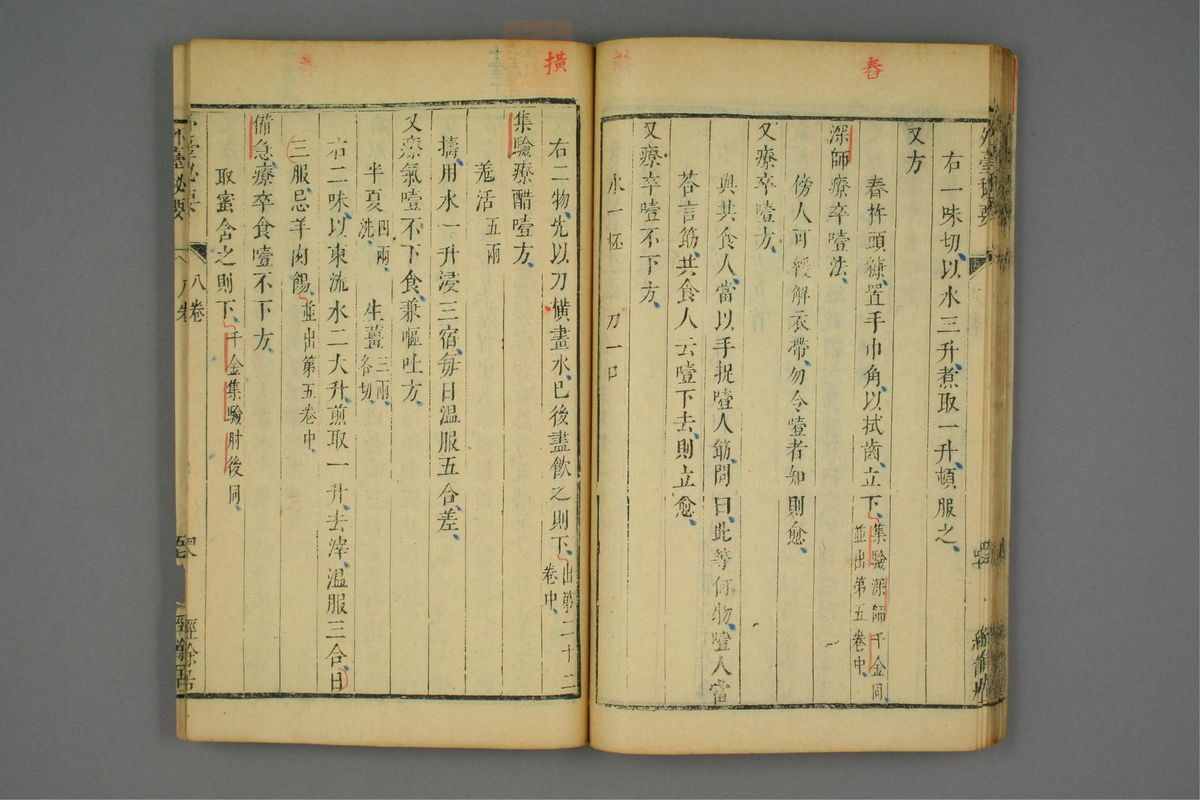 舂
右一味切以水三升煮取一升頓服之
又方
舂杵頭糠置手巾角以拭齒立下集驗深師千金同
並出第五卷中
深師療卒噎法
傍人可緩解衣帶勿令噎者知則愈
又療卒噎方
與共食人當以手捉噎人筯問曰此等何物噎人當
荅言筯共食人云噎下去則立愈
又療卒噎不下方
水一杯 刀一口
橫
右二物先以刀橫畫水已後盡飲之則下出第二十二
卷中
集驗療醋噎方
羗活五兩
擣用水一升浸三宿每日溫服五合差
又療氣噎不下食兼嘔吐方
半夏四兩洗 生薑三兩各切
右二味以東流水二大升煎取一升去滓溫服三合日
三服忌羊肉餳並出第五卷中
備急療卒食噎不下方
取蜜含之則下千金集驗肘後同
八卷
經餘居